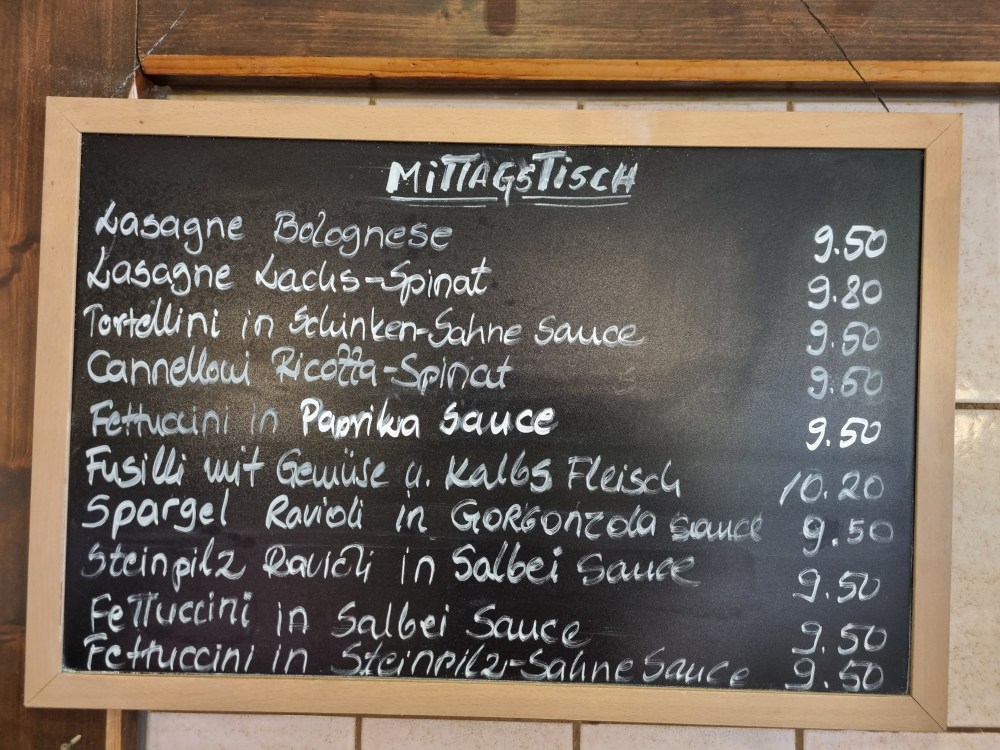 MITTAGSTISCH
Lasagne Bolognese 9.50
Lasagne Lachs-Spinat 9.80
Tortellini in Schinken-Sahne Sauce 9.50
Cannelloni Ricotta-Spinat 9.50
Fettuccini in Paprika Sauce 9.50
Fusilli mit Gemüse u. Kalbs Fleisch 10.20
Spargel Ravioli in Gorgonzola Sauce 9.50
Steinpilz Ravioli in Salbei Sauce 9.50
Fettuccini in Salbei Sauce 9.50
Fettuccini in Steinpilz-Sahne Sauce 9.50